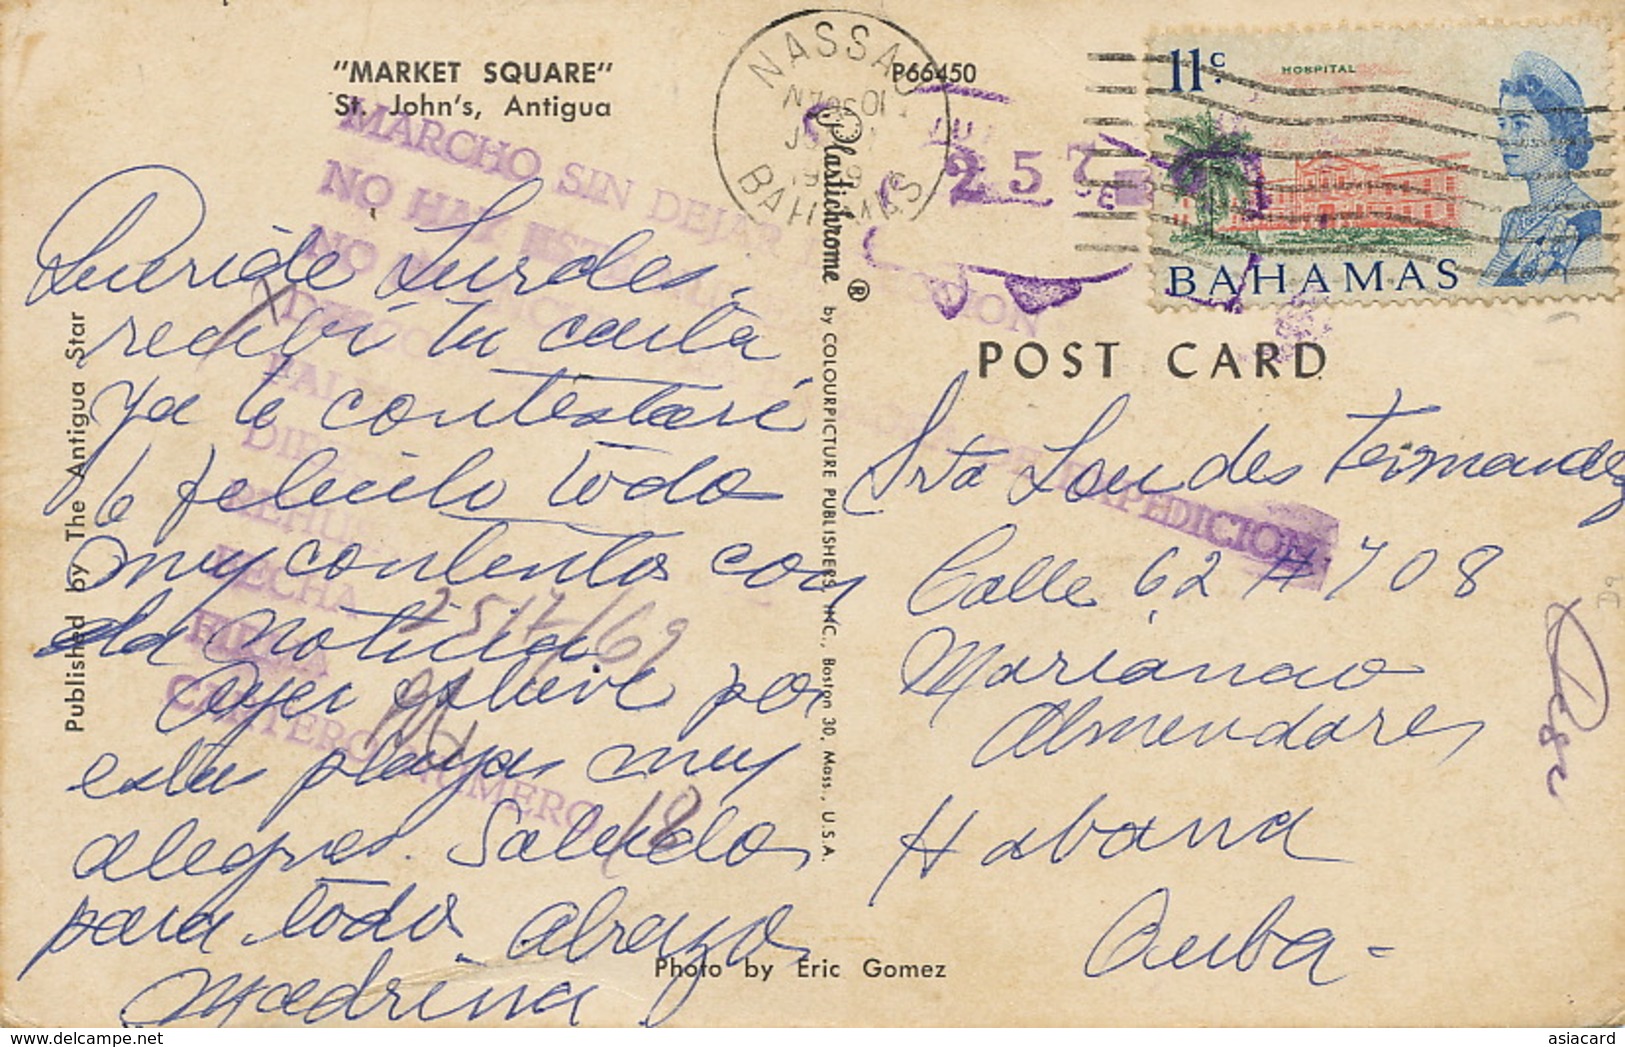 "MARKET SQUARE"
St. John's, Antigua
P66450
NASSAU
BAHAMAS
11c
HOSPITAL
BAHAMAS
257
POST CARD
Plastichrome ® by COLOURPICTURE PUBLISHERS INC., Boston 30, Mass., U.S.A.
Published by The Antigua Star
Photo by Eric Gomez
Queride Lurdes.
recibi tu carta
ya te contestaré
te felicito todos
muy contentos con
la noticia
Ayer estuve por
estas playas muy
alegres. Saludos
para todos abrazos
Madrina
Srta Lourdes Fernandez
Calle 62 # 708
Marianao
Almendares
Habana
Cuba -
MARCHO SIN DEJAR
NO HAY
EXPEDICION
FECHA 25/7/69
FIRMA
CARTERO NUMERO 18
asiacard